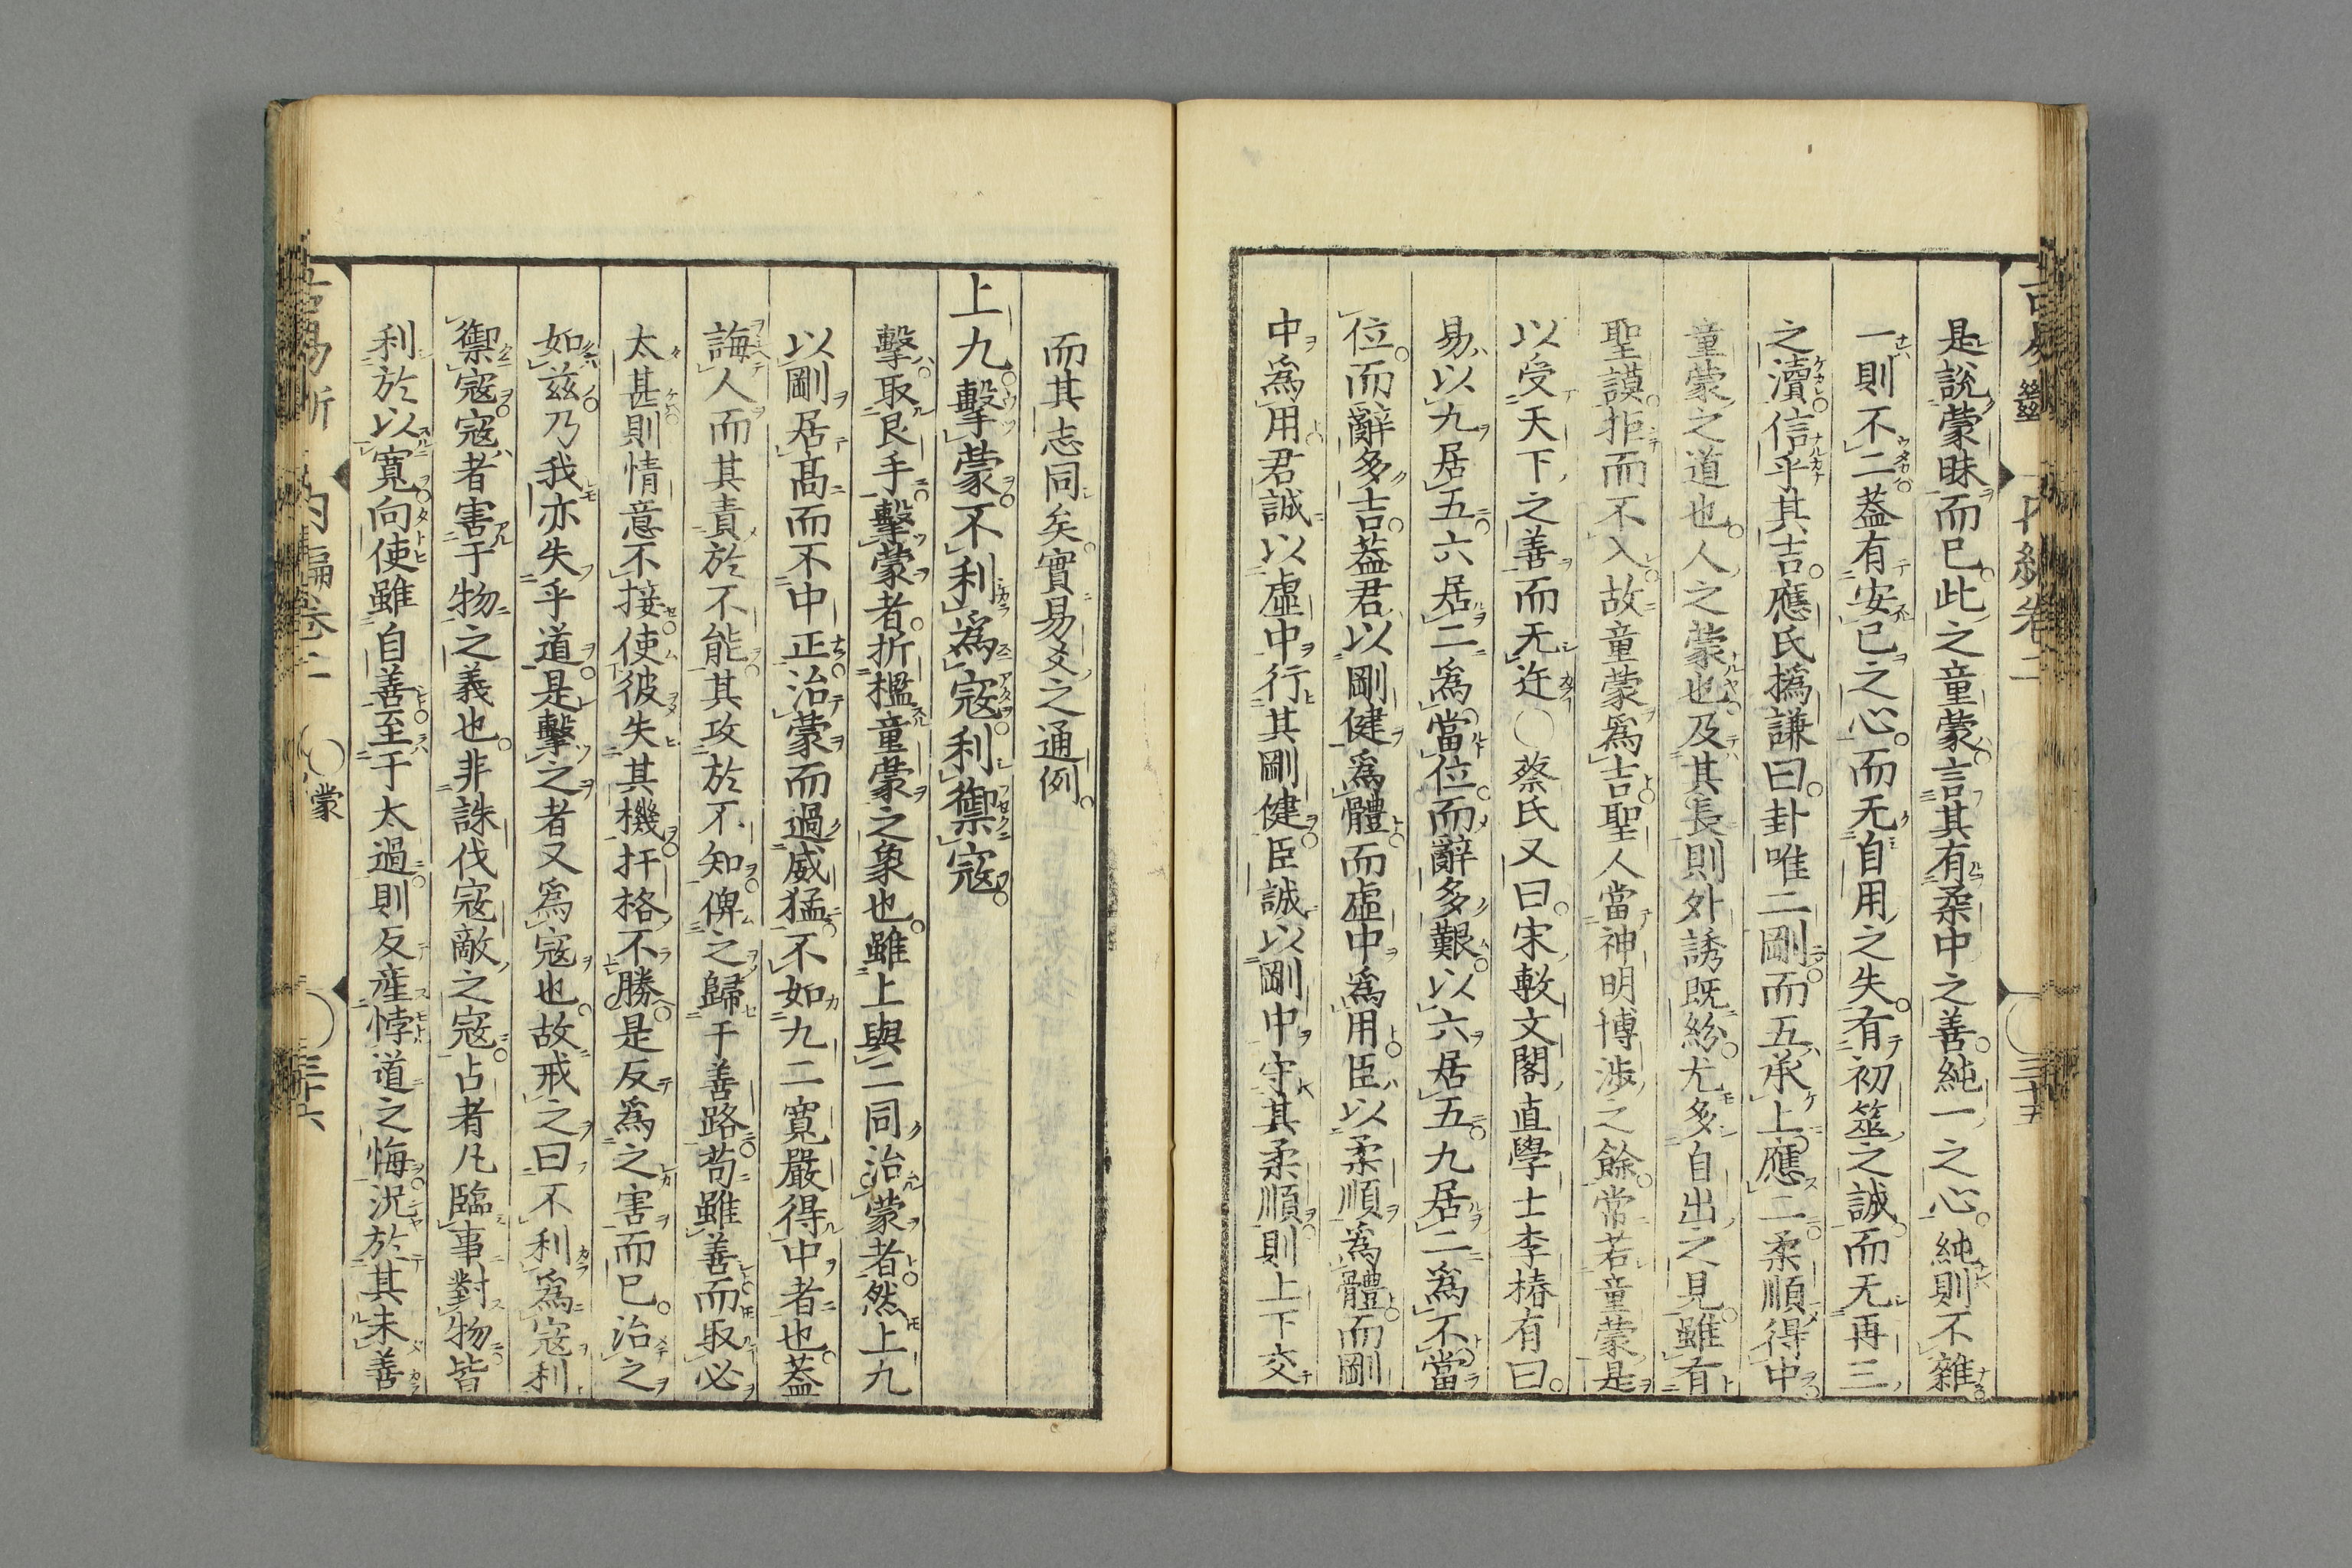 是說蒙昧而已此之童蒙言其有柔中之善純一之心純則不雜
一則不二蓋有安已之心而无自用之失有初筮之誠而无再三
之瀆信乎其吉應氏撝謙曰卦唯二剛而五承上應二柔順得中
童蒙之道也人之蒙也及其長則外誘既紛尤多自出之見雖有
聖謨拒而不入故童蒙爲吉聖人當神明博涉之餘常若童蒙是
以受天下之善而无迕○蔡氏又曰宋敕文閣直學士李椿有曰
易以九居五六居二爲當位而辭多艱以六居五九居二爲不當
位而辭多吉蓋君以剛健爲體而虛中爲用臣以柔順爲體而剛
中爲用君誠以虛中行其剛健臣誠以剛中守其柔順則上下交
而其志同矣實易爻之通例
上九擊蒙不利爲寇利禦寇
擊取艮手擊蒙者折楹童蒙之象也雖上與二同治蒙者然上九
以剛居高而不中正治蒙而過威猛不如九二寬嚴得中者也蓋
誨人而其責於不能其攻於不知俾之歸于善路苟雖善而取必
太甚則情意不接使彼失其機扞格不勝是反爲之害而已治之
如茲乃我亦失乎道是擊之者又爲寇也故戒之曰不利爲寇利
禦寇寇者害于物之義也非誅伐寇敵之寇占者凡臨事對物皆
利於以寬向使雖自善至于太過則反產悖道之悔況於其未善
內編卷二 ○蒙 三十六